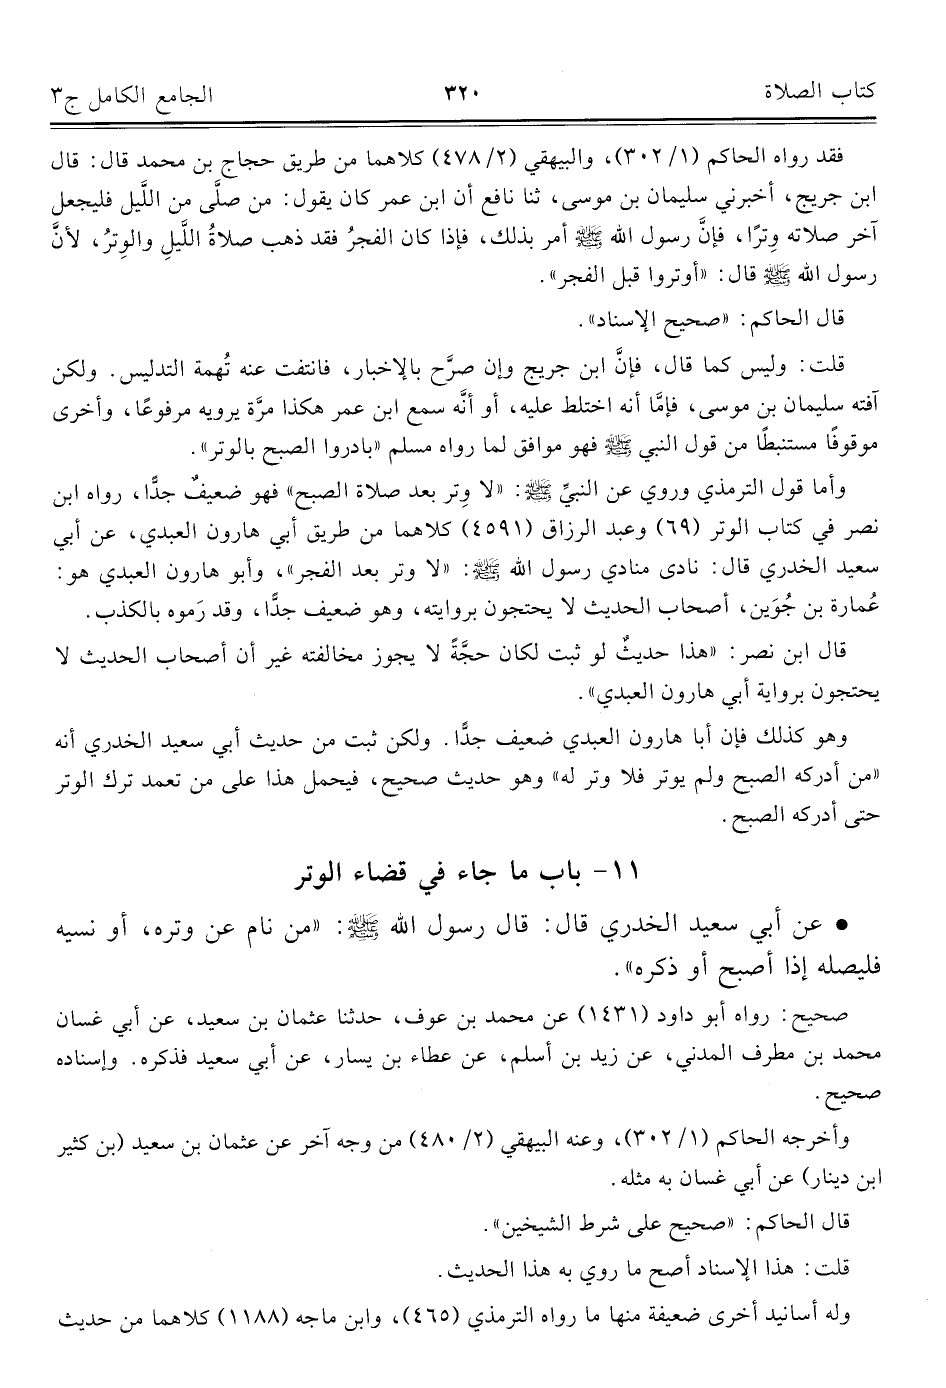 كتاب الصلاة ٣٢٠ الجامع الكامل ج٣
فقد رواه الحاكم (١/ ٣٠٢)، والبيهقي (٢/ ٤٧٨) كلاهما من طريق حجاج بن محمد قال: قال
ابن جريج، أخبرني سليمان بن موسى، ثنا نافع أن ابن عمر كان يقول: من صلَّى من اللَّيل فليجعل
آخر صلاته وِترًا، فإنَّ رسول الله ﷺ أمر بذلك، فإذا كان الفجرُ فقد ذهب صلاةُ اللَّيلِ والوِترُ، لأنَّ
رسول الله ﷺ قال: «أوتروا قبل الفجر».
قال الحاكم: «صحيح الإسناد».
قلت: وليس كما قال، فإنَّ ابن جريج وإن صرَّح بالإخبار، فانتفت عنه تُهمة التدليس. ولكن
آفته سليمان بن موسى، فإمَّا أنه اختلط عليه، أو أنَّه سمع ابن عمر هكذا مرَّة يرويه مرفوعًا، وأخرى
موقوفًا مستنبطًا من قول النبي ﷺ فهو موافق لما رواه مسلم «بادروا الصبح بالوتر».
وأما قول الترمذي وروي عن النبيِّ ﷺ: «لا وِتر بعد صلاة الصبح» فهو ضعيفٌ جدًّا، رواه ابن
نصر في كتاب الوتر (٦٩) وعبد الرزاق (٤٥٩١) كلاهما من طريق أبي هارون العبدي، عن أبي
سعيد الخدري قال: نادى منادي رسول الله ﷺ: «لا وتر بعد الفجر»، وأبو هارون العبدي هو:
عُمارة بن جُوَين، أصحاب الحديث لا يحتجون بروايته، وهو ضعيف جدًّا، وقد رَموه بالكذب.
قال ابن نصر: «هذا حديثٌ لو ثبت لكان حجَّةً لا يجوز مخالفته غير أن أصحاب الحديث لا
يحتجون برواية أبي هارون العبدي».
وهو كذلك فإن أبا هارون العبدي ضعيف جدًّا. ولكن ثبت من حديث أبي سعيد الخدري أنه
«من أدركه الصبح ولم يوتر فلا وتر له» وهو حديث صحيح، فيحمل هذا على من تعمد ترك الوتر
حتى أدركه الصبح.
١١- باب ما جاء في قضاء الوتر
• عن أبي سعيد الخدري قال: قال رسول الله ﷺ: «من نام عن وتره، أو نسيه
فليصله إذا أصبح أو ذكره».
صحيح: رواه أبو داود (١٤٣١) عن محمد بن عوف، حدثنا عثمان بن سعيد، عن أبي غسان
محمد بن مطرف المدني، عن زيد بن أسلم، عن عطاء بن يسار، عن أبي سعيد فذكره. وإسناده
صحيح.
وأخرجه الحاكم (١/ ٣٠٢)، وعنه البيهقي (٢/ ٤٨٠) من وجه آخر عن عثمان بن سعيد (بن كثير
ابن دينار) عن أبي غسان به مثله.
قال الحاكم: «صحيح على شرط الشيخين».
قلت: هذا الإسناد أصح ما روي به هذا الحديث.
وله أسانيد أخرى ضعيفة منها ما رواه الترمذي (٤٦٥)، وابن ماجه (١١٨٨) كلاهما من حديث